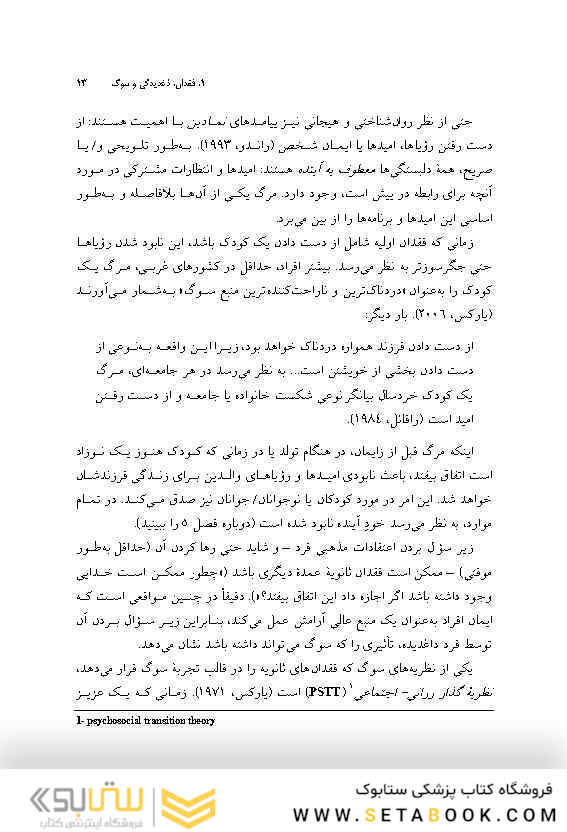 ۱. فقدان، داغدیدگی و سوگ ۱۳
حتی از نظر روان‌شناختی و هیجانی نیز پیامدهای نمادین با اهمیت هستند: از
دست رفتن رؤیاها، امیدها یا ایمان شخص (راندو، ۱۹۹۳). به‌طور تلویحی و/ یا
صریح، همهٔ دلبستگی‌ها معطوف به آینده هستند: امیدها و انتظارات مشترکی در مورد
آنچه برای رابطه در پیش است، وجود دارد. مرگ یکی از آن‌ها بلافاصله و به‌طور
اساسی این امیدها و برنامه‌ها را از بین می‌برد.
زمانی که فقدان اولیه شامل از دست دادن یک کودک باشد، این نابود شدن رؤیاها
حتی جگرسوزتر به نظر می‌رسد. بیشتر افراد، حداقل در کشورهای غربی، مرگ یک
کودک را به‌عنوان «دردناک‌ترین و ناراحت‌کننده‌ترین منبع سوگ» به‌شمار می‌آورند
(پارکس، ۲۰۰۶). بار دیگر:
از دست دادن فرزند همواره دردناک خواهد بود، زیرا این واقعه به‌نوعی از
دست دادن بخشی از خویشتن است... به نظر می‌رسد در هر جامعه‌ای، مرگ
یک کودک خردسال بیانگر نوعی شکست خانواده یا جامعه و از دست رفتن
امید است (رافائل، ۱۹۸۴).
اینکه مرگ قبل از زایمان، در هنگام تولد یا در زمانی که کودک هنوز یک نوزاد
است اتفاق بیفتد، باعث نابودی امیدها و رؤیاهای والدین برای زندگی فرزندشان
خواهد شد. این امر در مورد کودکان یا نوجوانان/ جوانان نیز صدق می‌کند. در تمام
موارد، به نظر می‌رسد خودِ آینده نابود شده است (دوباره فصل ۵ را ببینید).
زیر سؤال بردن اعتقادات مذهبی فرد – و شاید حتی رها کردن آن (حداقل به‌طور
موقتی) – ممکن است فقدان ثانویهٔ عمدهٔ دیگری باشد («چطور ممکن است خدایی
وجود داشته باشد اگر اجازه داد این اتفاق بیفتد؟»). دقیقاً در چنین مواقعی است که
ایمان افراد به‌عنوان یک منبع عالی آرامش عمل می‌کند، بنابراین زیر سؤال بردن آن
توسط فرد داغدیده، تأثیری را که سوگ می‌تواند داشته باشد نشان می‌دهد.
یکی از نظریه‌های سوگ که فقدان‌های ثانویه را در قالب تجربهٔ سوگ قرار می‌دهد،
نظریهٔ گذار روانی- اجتماعی۱ (PSTT) است (پارکس، ۱۹۷۱). زمانی که یک عزیز
1- psychosocial transition theory
فروشگاه کتاب پزشکی ستابوک
WWW.SETABOOK.COM
ستابوک
فروشگاه اینترنتی کتاب